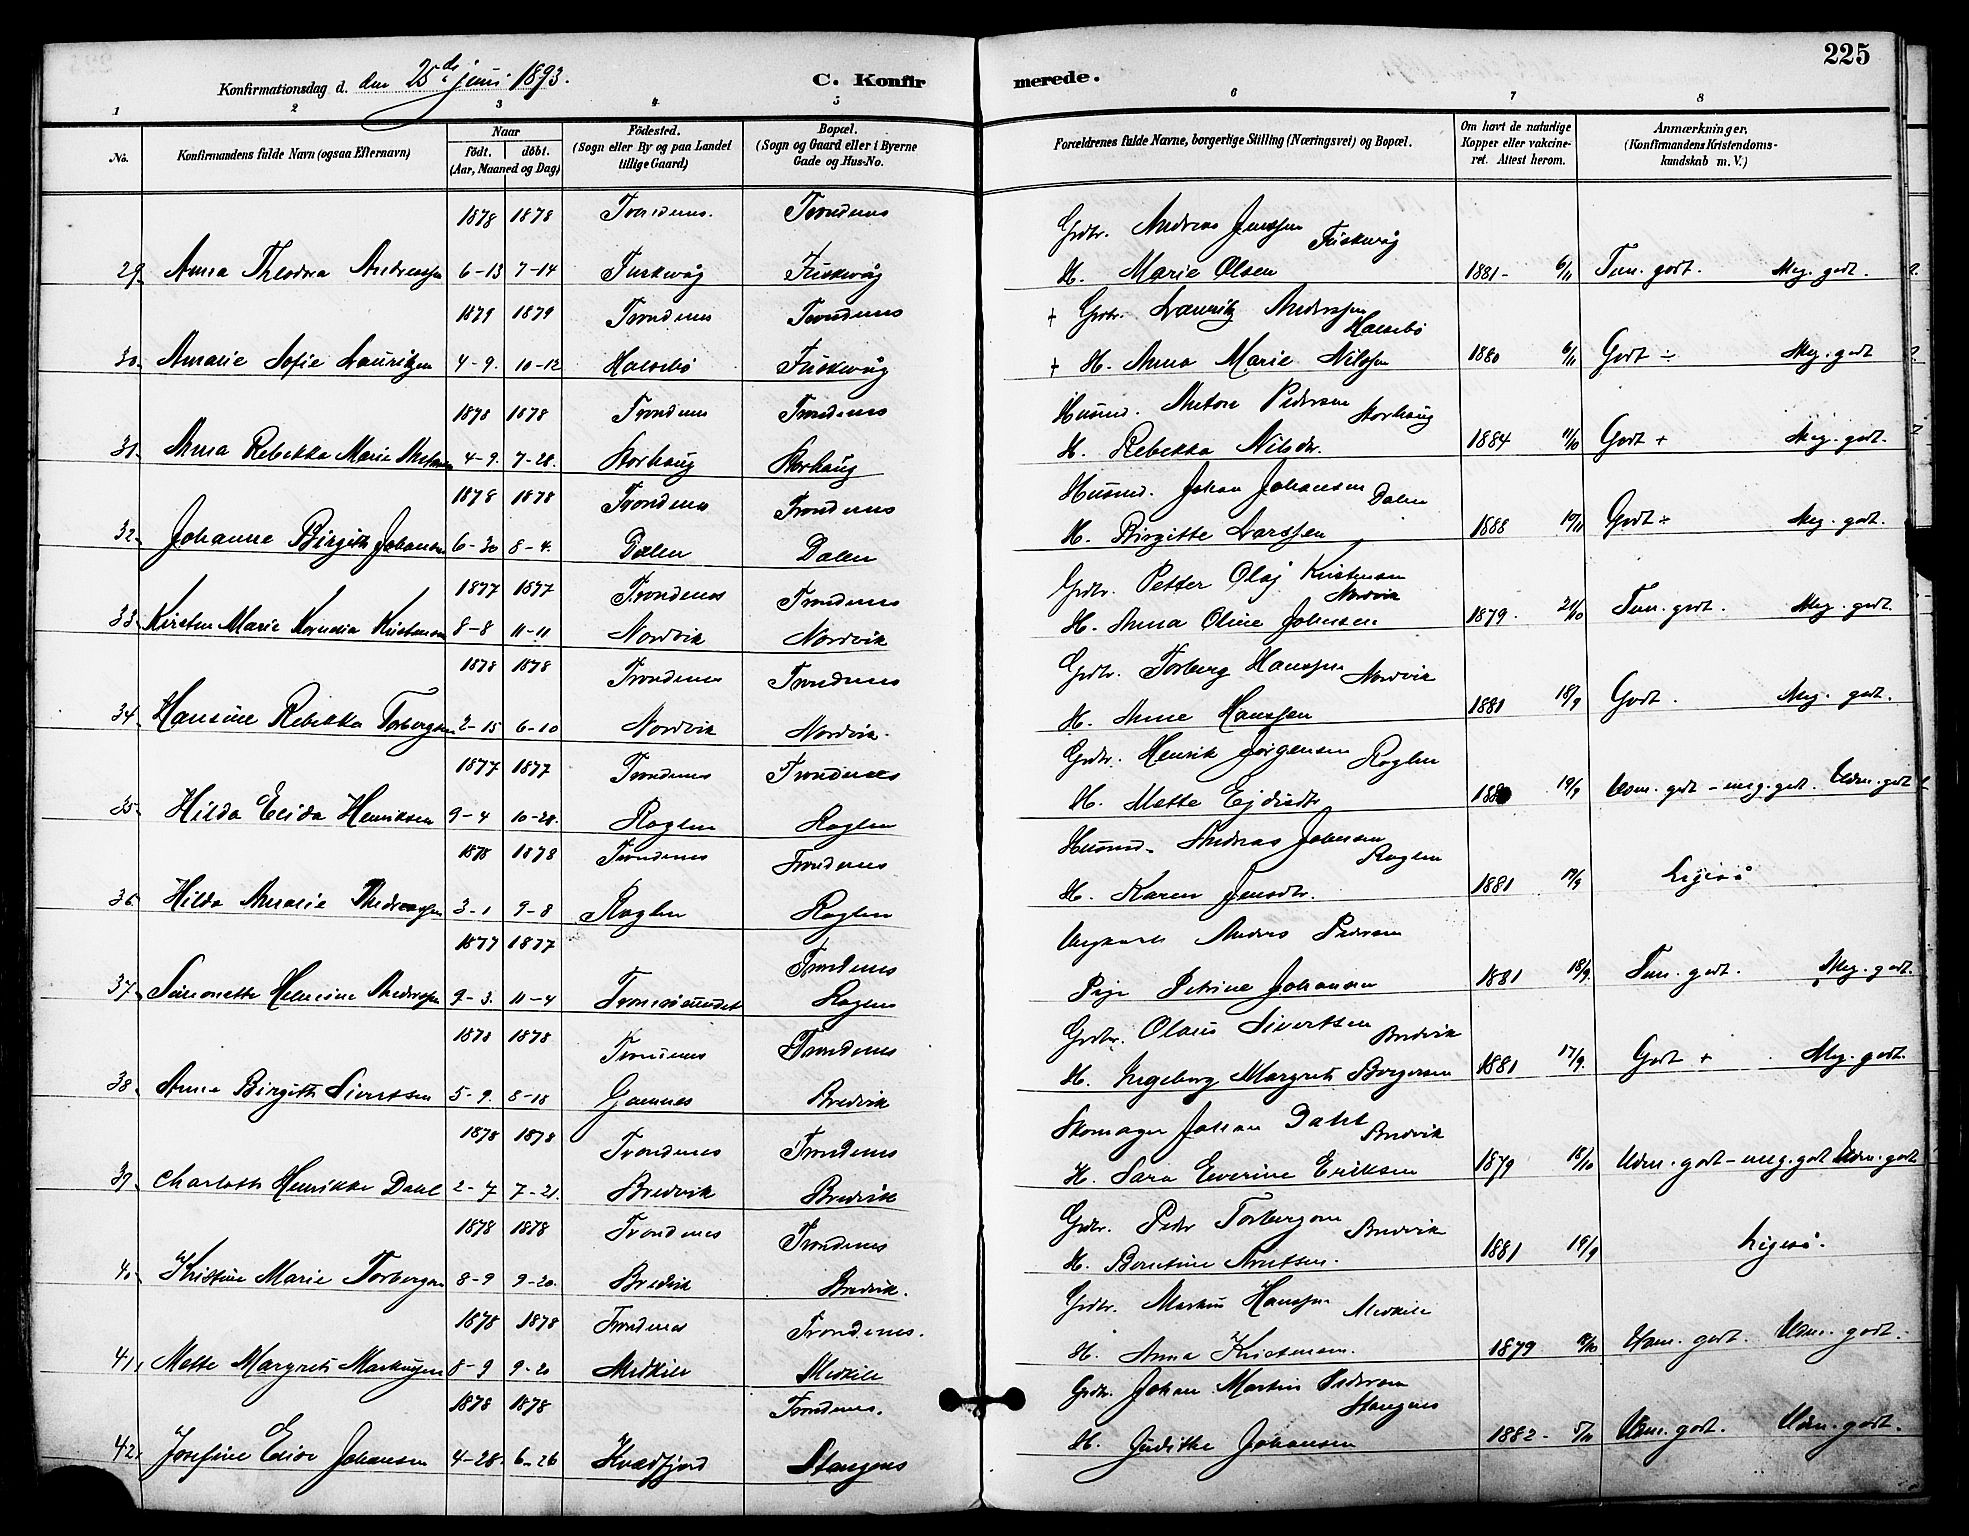 225
Konfirmationsdag d. den 25de juni 1893.
C. Konfirmerede.
1 2 3 4 5 6 7 8
No.
Konfirmandens fulde Navn (ogsaa Efternavn)
Naar
født. døbt.
(Aar, Maaned og Dag)
Fødested.
(Sogn eller By og paa Landet
tillige Gaard)
Bopæl.
(Sogn og Gaard eller i Byerne
Gade og Hus-No.
Forældrenes fulde Navne, borgerlige Stilling (Næringsvei) og Bopæl.
Om havt de naturlige
Kopper eller vakcine-
ret. Attest herom.
Anmærkninger.
(Konfirmandens Kristendoms-
kundskab m. V.)
1878 1878 Trondenes. Trondenes Grdbr. Andreas Jenssen Fuskevåg
29. Anna Theodora Andreassen 6-13 7-14 Fuskevåg Fuskevåg H. Marie Olsen 1881- 6/11 Tem. godt. Meg. godt.
1879 1879 Trondenes Trondenes + Grdbr. Lauritz Anderssen Halsebø
30. Amalie Sofie Lauritzen 4-9. 10-12 Halsebø Fuskevåg + H. Anna Marie Nilssen 1880 6/11 Godt ÷ Meg. godt
1878 1878 Trondenes Trondenes Husmd. Anton Pedersen Korhaug
31. Anna Rebekka Marie Antonsen 4-9. 7-28. Korhaug Korhaug H. Rebekka Nilsdr. 1884 11/10 Godt + Meg. godt.
1878 1878 Trondenes Trondenes Husmd. Johan Johansen Dalen
32. Johanne Birgith Johansen 6-30 8-4. Dalen Dalen H. Birgitte Larssen 1888 19/11 Godt ÷ Meg. godt.
1877 1877 Trondenes Trondenes Grdbr. Petter Olaj Kristensen Nordvik
33. Kirsten Marie Kornelia Kristensen 8-8 11-11 Nordvik Nordvik H. Anna Oline Johnsen 1879. 21/10 Tem. godt. Meg. godt.
1878 1878 Trondenes Trondenes Grdbr. Torberg Hanssen Nordvik
34. Hansine Rebekka Torbergsen 2-15 6-10 Nordvik Nordvik. H. Anne Hanssen 1881 18/9 Godt. Meg. godt.
1877 1877 Trondenes Trondenes Grdbr. Henrik Jørgensen Roglen
35. Hilda Elida Henriksen 9-4 10-28. Roglen Roglen H. Mette Ejdisdtr 19/9 Udm. godt - meg. godt. Udm. godt
1878 1878 Trondenes Trondenes Husmd. Andreas Johnsen Roglen
36. Hilda Amalie Andreassen 3-1 9-8 Roglen Roglen H. Karen Jensdtr. 1881 17/9 Ligeså
1877 1877 Trondenes Ungkarl Andreas Pedersen
37. Simonette Helmine Anderssen 9-3. 11-4 Tromsøsundet Roglen Pige Petrine Johansen 1881 18/9. Tem. godt. Meg. godt.
1878 1878 Trondenes Trondenes Grdbr. Olaus Sivertsen Bredvik
38. Anna Birgith Sivertsen 5-9. 8-18 Gamnes Bredvik H. Ingeborg Margrete Borgersen 1881 17/9. Godt + Meg. godt.
1878 1878 Trondenes Trondenes Skomager Johan Dahl Bredvik
39. Charlotte Henrikke Dahl 2-7 7-21. Bredvik Bredvik H. Sara Everine Eriksen 1879 18/10 Udm. godt - meg. godt Udm. godt
1878 1878 Trondenes Trondenes Grdbr. Peder Torbergsen Bredvik
40. Kristine Marie Torbergsen 8-9 9-20. Bredvik Bredvik. H. Berntine Knutsen. 1881 19/9 Ligeså.
1878 1878 Trondenes Trondenes. Grdbr. Markus Hanssen Medkile
41. Mette Margrete Markussen 8-9 9-20 Medkile Medkile H. Anna Kristensen. 1879 Udm. godt. Udm. godt.
1878 1878 Trondenes. Grdbr. Johan Martin Pedersen Stangnes
42. Josefine Elise Johansen 4-28. 6-26 Kvædfjord Stangnes H. Judithe Johansen 1882- Udm. godt. Udm. godt.